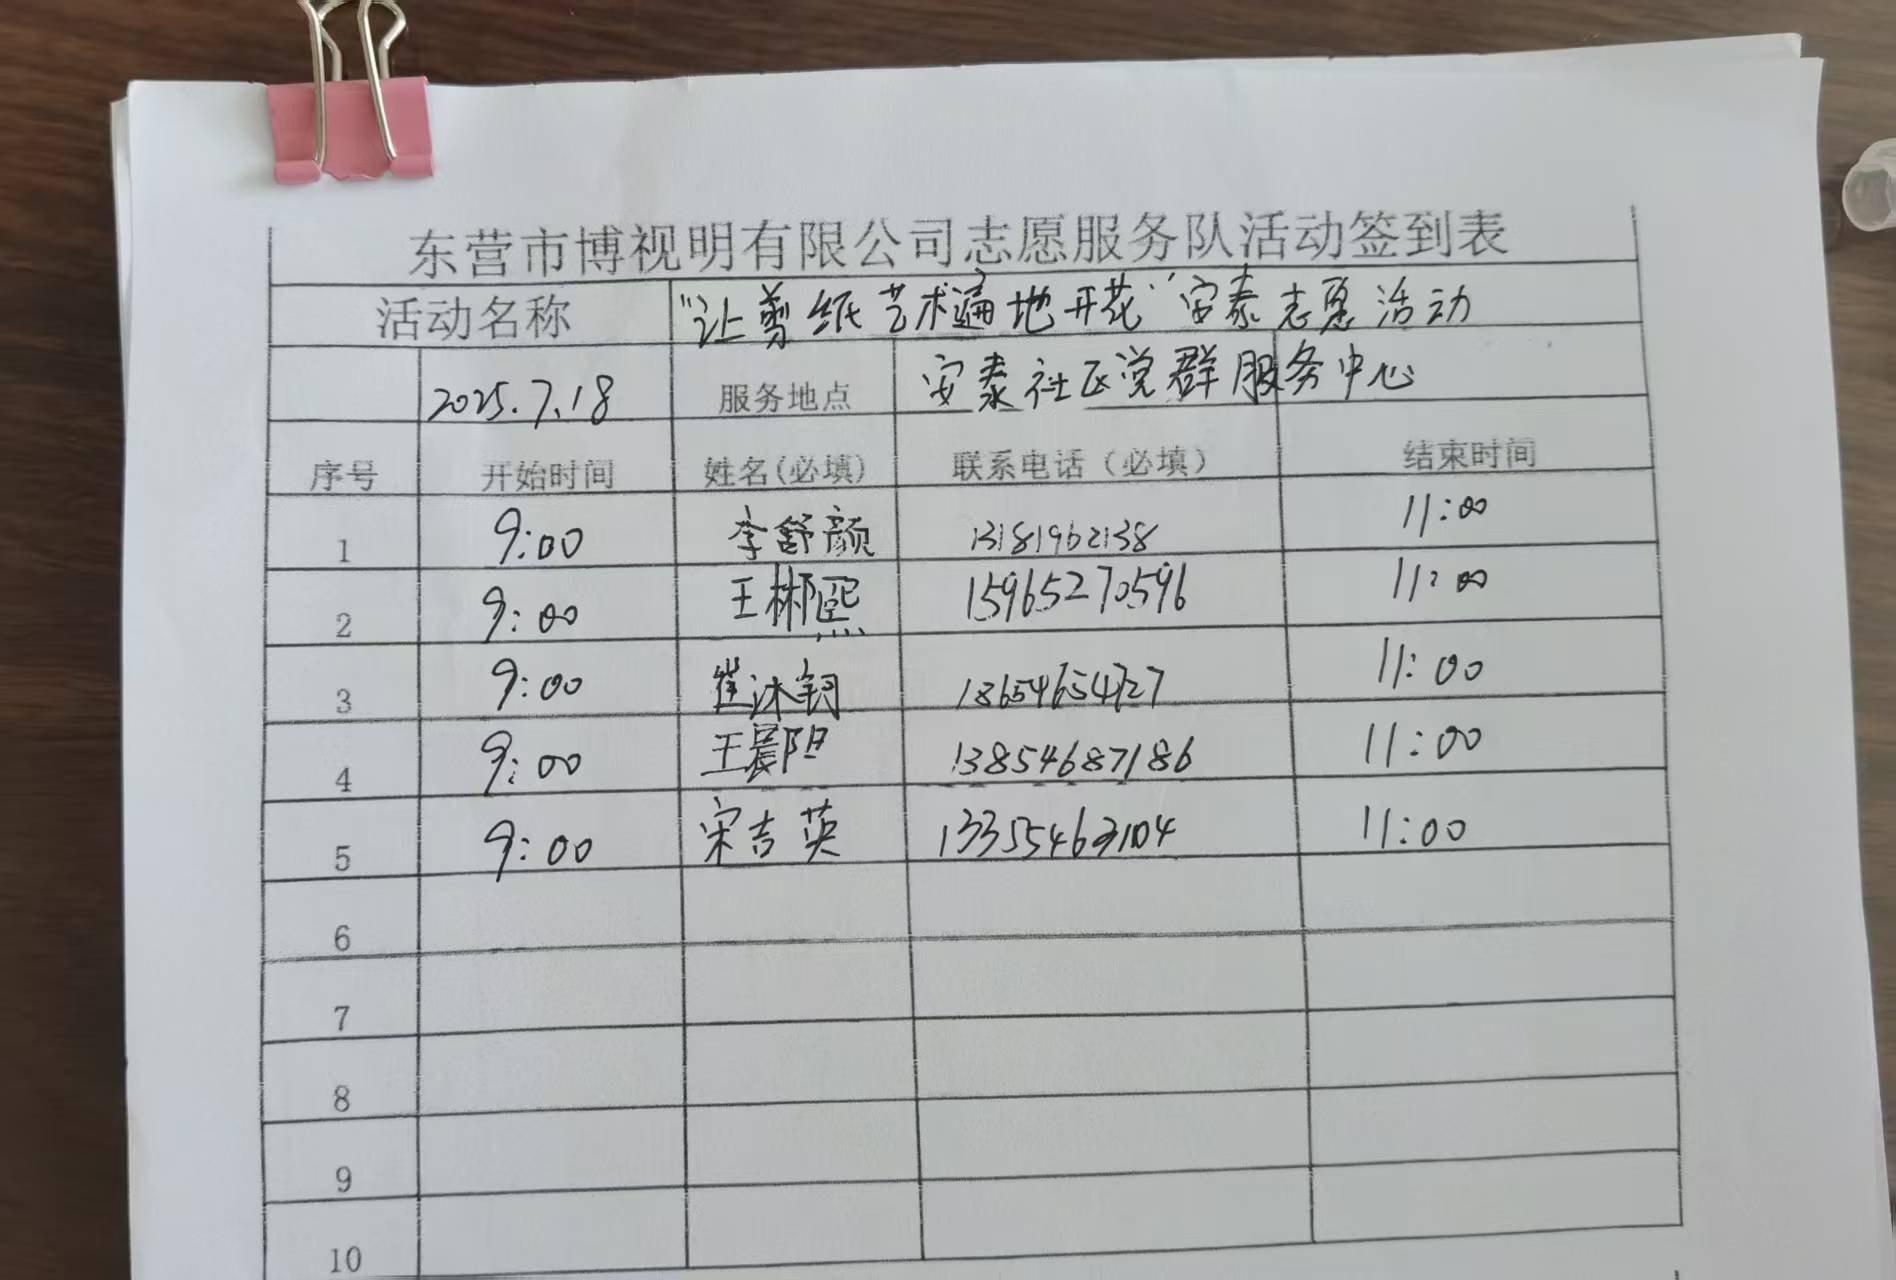 东营市博视明有限公司志愿服务队活动签到表
活动名称 "让剪纸艺术遍地开花"安泰志愿活动
2025.7.18 服务地点 安泰社区党群服务中心
序号 开始时间 姓名(必填) 联系电话（必填） 结束时间
1 9:00 李舒颜 13181962138 11:00
2 9:00 王彬熙 15965270596 11:00
3 9:00 崔沐钥 18654654727 11:00
4 9:00 王晨阳 13854687186 11:00
5 9:00 宋吉英 13355463104 11:00
6
7
8
9
10